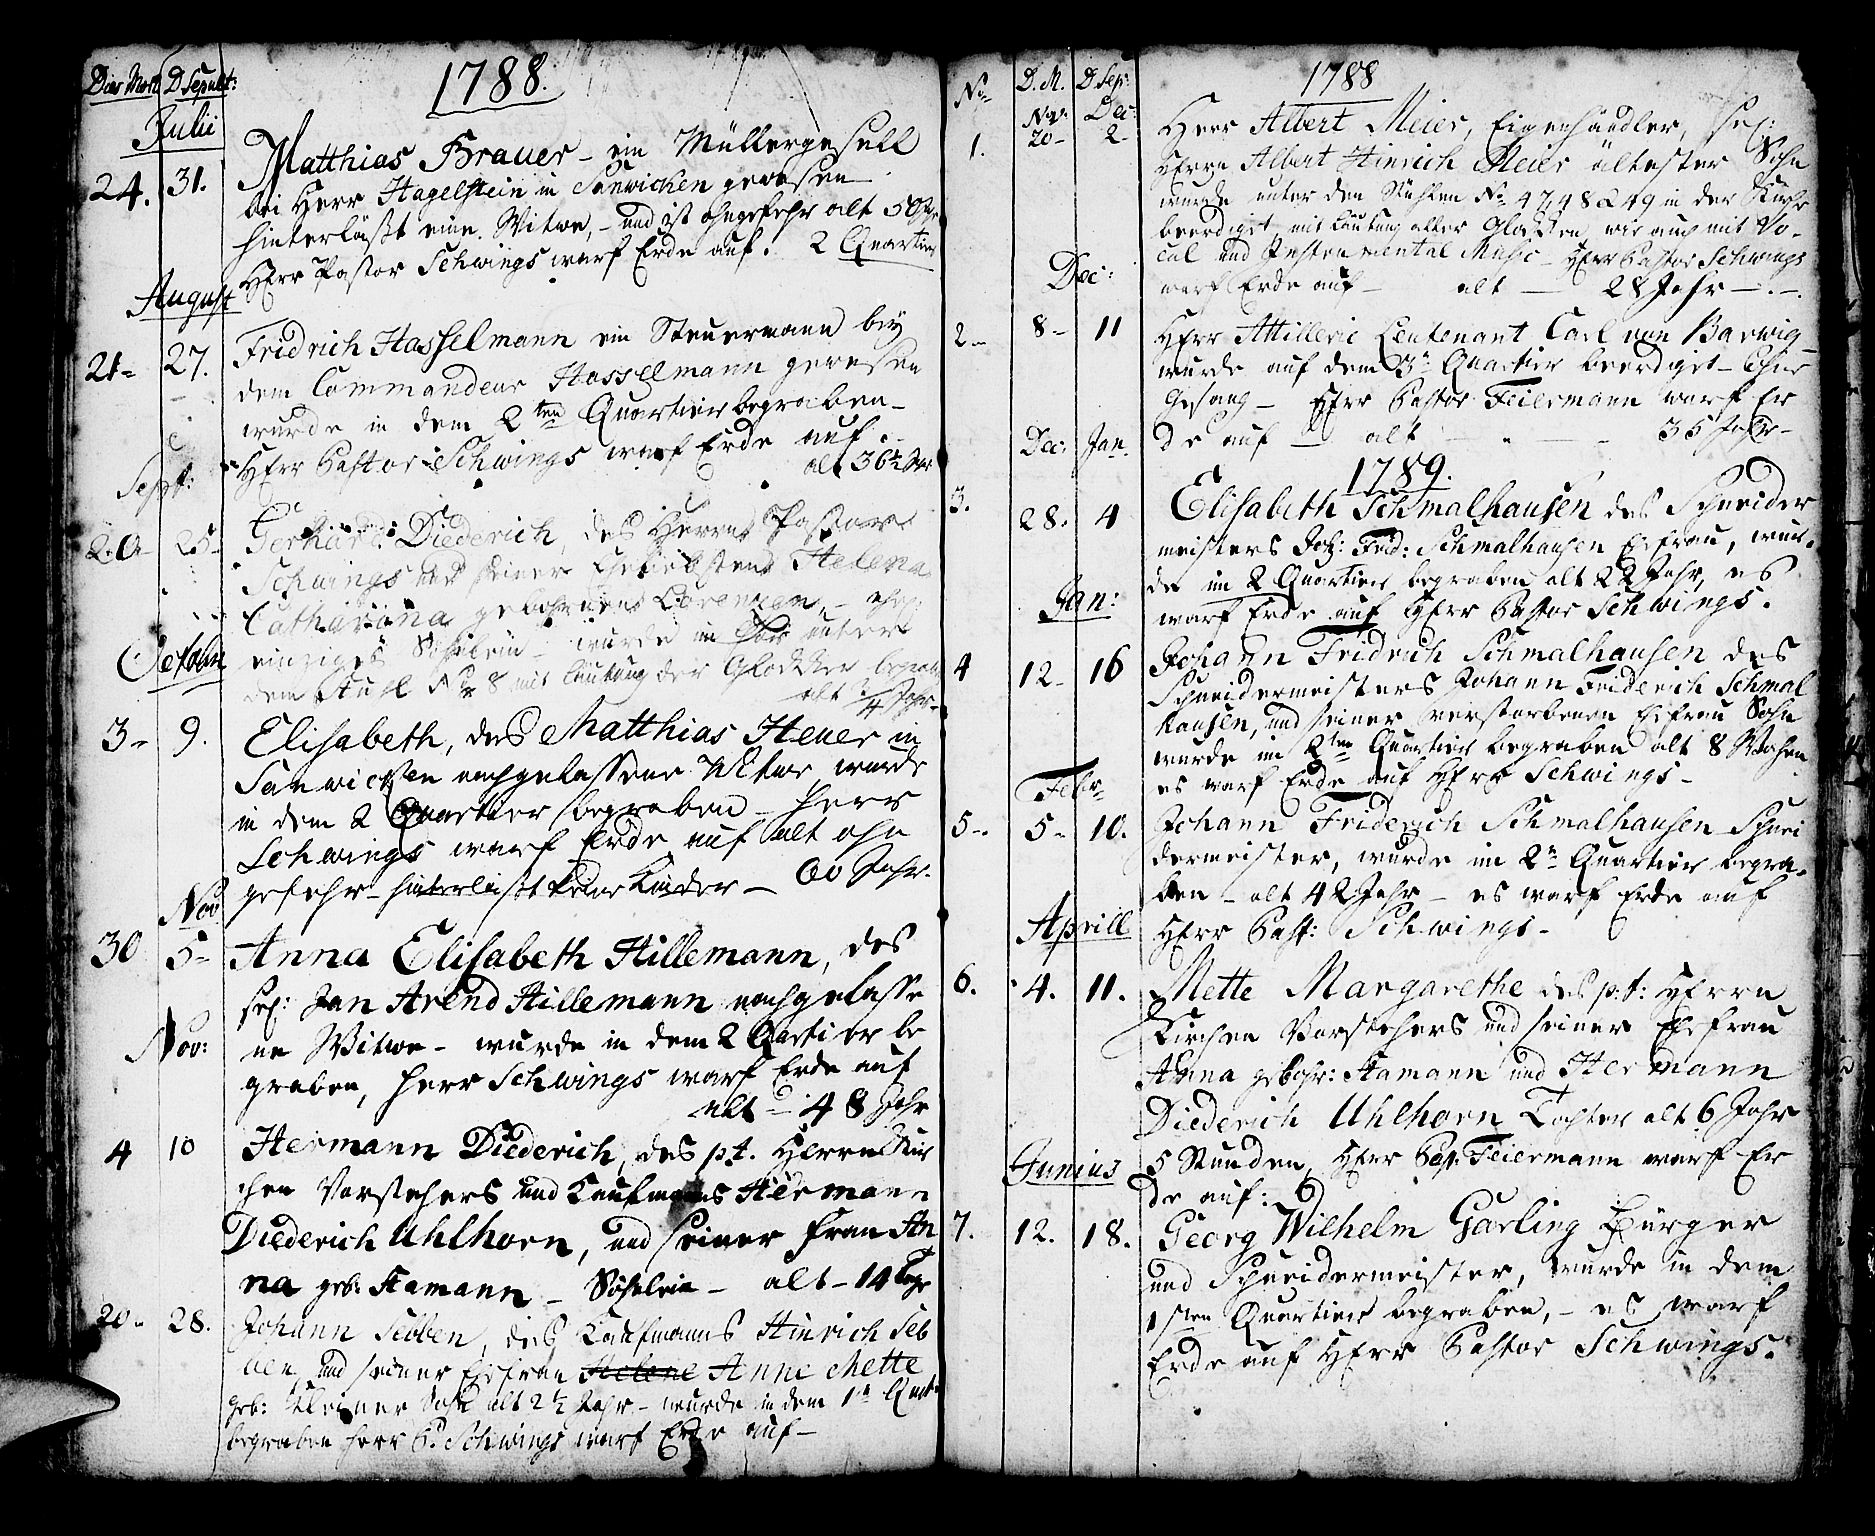 Dies Mort. D Sepult:
1788.
Julii
24. 31. Matthias Brauer – ein Müllergesell
bei Herr Hagelstein in Sanwicken gewesen
hinterläßt eine Witwe, – und ist ohngefehr alt 50 Jahr
Herr Pastor Schwings warf Erde auf. 2 Quartier
August
21– 27. Fridrich Hasselmann ein Steuermann bey
dem Commandeur Hasselmann gewesen
wurde in dem 2ten Quartier begraben –
Herr Pastor Schwings warf Erde auf –
alt 36½ Jahr
Sept:
20– 25– Gerhard Diederich, des Herrn Pastor
Schwings und seiner Eheliebsten Helena
Catharina gebohrnen Lorenzen, – ehel:
einziges Söhnlein – wurde im Chor unter
dem Stuhl No 8 mit Läutung der Glocken begraben
alt ¾ Jahr –
October
3– 9. Elisabeth, des Matthias Heuer in
Sanwicken nachgelassene Witwe wurde
in dem 2 Quartier begraben – Herr
Schwings warf Erde auf alt ohn
gefehr – hinterläßt keine Kinder – 60 Jahr.
Nov
30 5– Anna Elisabeth Hillemann, des
sel: Jan Arend Hillemann nachgelasse
ne Witwe – wurde in dem 2 Qartier be
graben, Herr Schwings warf Erde auf
alt – 48 Jahr
Nov:
4 10 Hermann Diederich, des p.t. Herrn Kir
chen Vorstehers und Kaufmanns Hermann
Diederich Uhlhorn, und seiner Frau An
na geb: Hamann – Söhnlein – alt – 14 Tage
20– 28. Johann Sebben, des Kaufmanns Hinrich Seb
ben, und seiner Ehefrau Helene Anne Mette
geb: Kleiner Sohn alt 2½ Jahr – wurde in dem 1n Quart:
begraben Herr P. Schwings warf Erde auf –
No D. M. D Sep:
1788
Nov: Dec:
1. 20– 2– Herr Albert Meier, Eigenhändler, sel:
Herrn Albert Hinrich Meier ältester Sohn
wurde unter den Stühlen No 47, 48 & 49 in der Kirche
beerdiget, mit Läutung aller Glocken wie auch mit Vo–
cal und Instrumental Music – Herr Pastor Schwings
warf Erde auf – alt – 28 Jahr –.–
Dec:
2– 8– 11 Herr Attillerie Leutenant Carl von Barwig
wurde auf dem 3n Quartier beerdiget – Ohne
Gesang – Herr Pastor Feiermann warf Er
de auf – alt – 35 Jahr –
Dec: Jan
1789.
3. 28. 4 Elisabeth Schmalhausen des Schneider
meisters Joh: Frid: Schmalhausen Ehfrau, wur–
de im 2 Quartier begraben alt 22 Jahr, es
warf Erde auf Herr Pastor Schwings.
Jan:
4 12– 16 Johann Fridrich Schmalhausen des
Schneidermeisters Johann Friderich Schmal
hausen, und seiner verstorbenen Ehfrau Sohn
wurde im 2ten Quartier begraben alt 8 Wochen
es warf Erde auf Herr Schwings –
Febr
5– 5– 10. Johann Friderich Schmalhausen Schnei
dermeister, wurde im 2n Quartier begra–
ben – alt 42 Jahr – es warf Erde auf
Herr Past: Schwings –
Aprill
6. 4. 11. Mette Margarethe des p.t: Herrn
Kirchen Vorstehers und seiner Ehefrau
Anna gebohr: Hamann und Hermann
Diederich Uhlhorn Tochter alt 6 Jahr
5 Stunden, Herr Past Feiermann warf Er
de auf:
Junius
7. 12. 18. Georg Wilhelm Garling Bürger
und Schneidermeister, wurde in dem
1sten Quartier begraben, – es warf
Erde auf Herr Pastor Schwings.